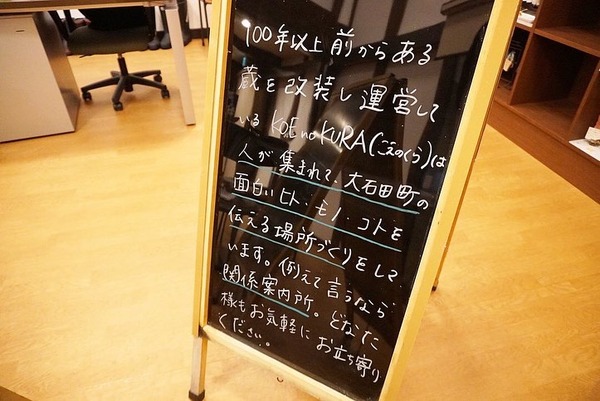 100年以上前からある
蔵を改装し運営して
いるKOE no KURA(こえのくら)は
人が集まれて、大石田町の
面白いヒト・モノ・コトを
伝える場所づくりをして
います。例えて言うなら
関係案内所。どなた
様もお気軽にお立ち寄り
ください。